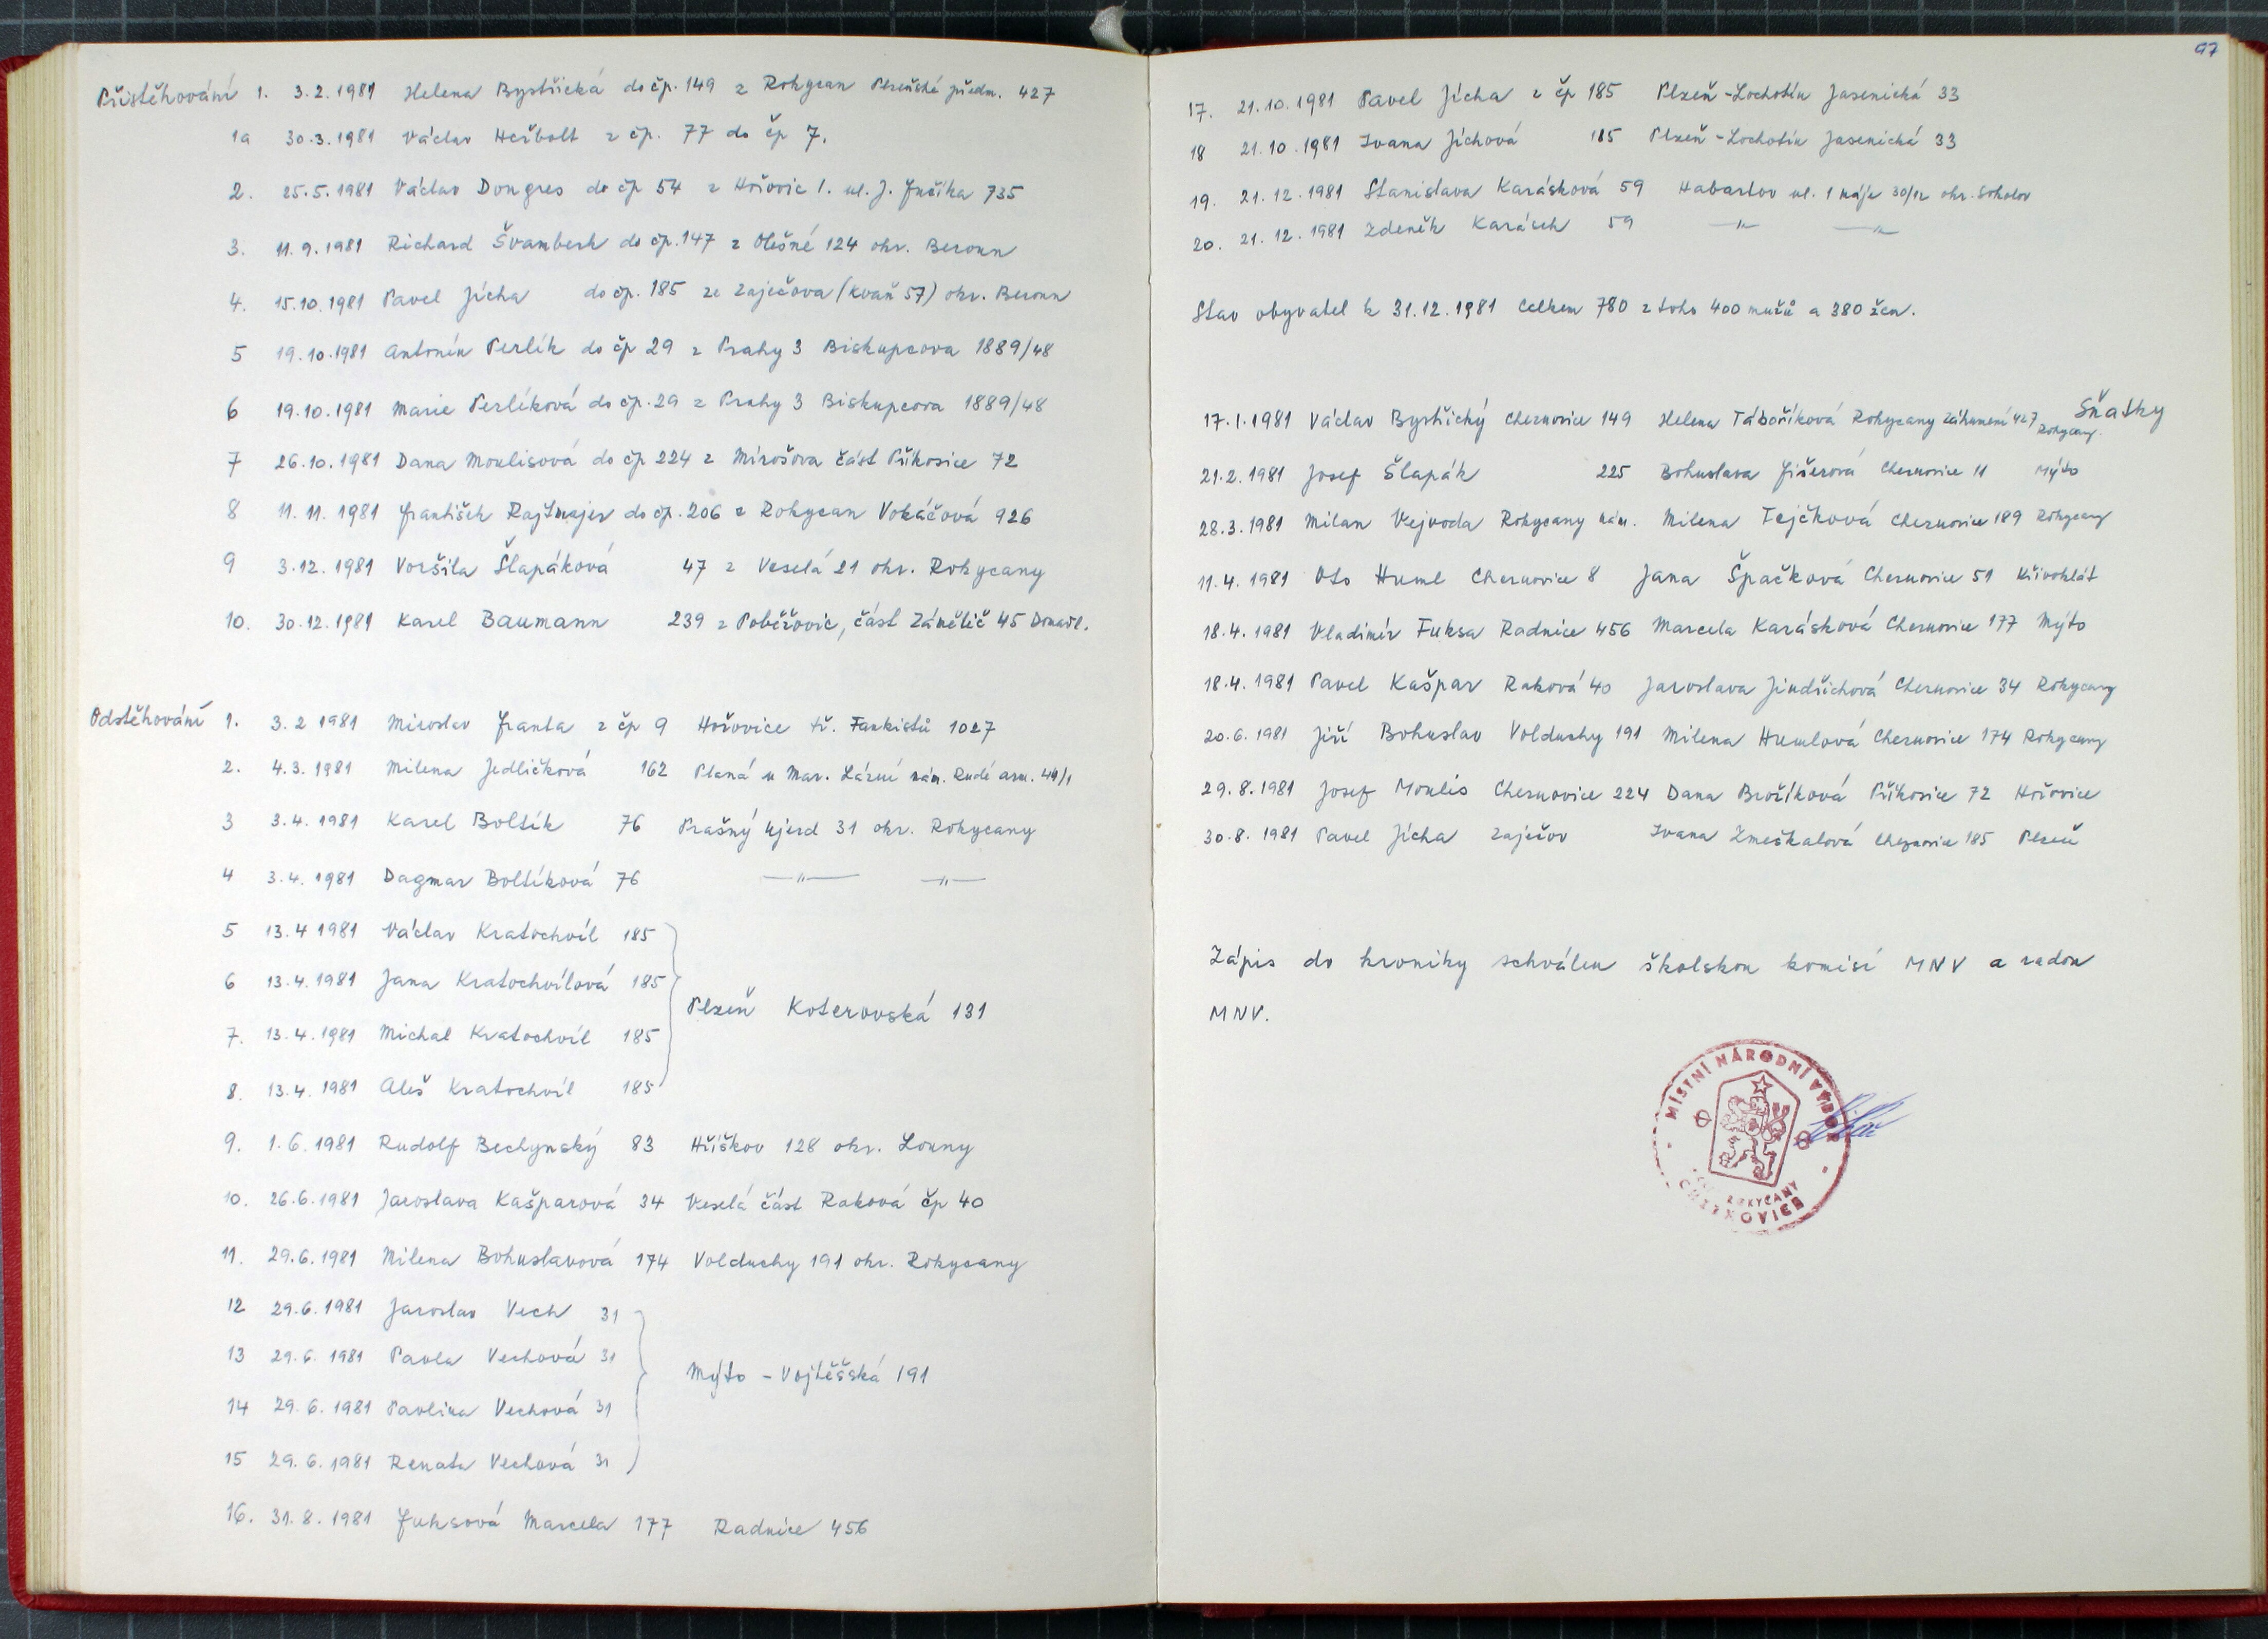 Přistěhování 1. 3.2.1981 Helena Bystřická do čp. 149 z Rokycan Plzeňské předm. 427
1a 30.3.1981 Václav Heřbolt z čp. 77 do čp 7.
2. 25.5.1981 Václav Dongres do čp 54 z Hořovic 1. ul. J. Fučíka 735
3. 11.9.1981 Richard Švamberk do čp. 147 z Olešné 124 okr. Beroun
4. 15.10.1981 Pavel Jícha do čp. 185 ze Zaječova (Kvaň 57) okr. Beroun
5 19.10.1981 Antonín Perlík do čp 29 z Prahy 3 Biskupcova 1889/48
6 19.10.1981 Marie Perlíková do čp. 29 z Prahy 3 Biskupcova 1889/48
7 26.10.1981 Dana Moulisová do čp 224 z Mirošova část Příkosice 72
8 11.11.1981 František Rajtmajer do čp. 206 z Rokycan Vokáčová 926
9 3.12.1981 Voršila Šlapáková 47 z Veselá 21 okr. Rokycany
10. 30.12.1981 Karel Baumann 239 z Poběžovic, část Zámělič 45 Domažl.
Odstěhování 1. 3.2 1981 Miroslav Franta z čp 9 Hořovice tř. Tankistů 1027
2. 4.3.1981 Milena Jedličková 162 Planá u Mar. Lázní nám. Rudé arm. 44/1
3 3.4.1981 Karel Boltík 76 Prašný Újezd 31 okr. Rokycany
4 3.4.1981 Dagmar Boltíková 76 —"— —"—
5 13.4 1981 Václav Kratochvíl 185
6 13.4.1981 Jana Kratochvílová 185
Plzeň Koterovská 131
7. 13.4.1981 Michal Kratochvíl 185
8. 13.4.1981 Aleš Kratochvíl 185
9. 1.6.1981 Rudolf Bechynský 83 Hříškov 128 okr. Louny
10. 26.6.1981 Jaroslava Kašparová 34 Veselá část Raková čp 40
11. 29.6.1981 Milena Bohuslavová 174 Volduchy 191 okr. Rokycany
12 29.6.1981 Jaroslav Vech 31
13 29.6.1981 Pavla Vechová 31
Mýto - Vojtěšská 191
14 29.6.1981 Pavlína Vechová 31
15 29.6.1981 Renata Vechová 31
16. 31.8.1981 Fuksová Marcela 177 Radnice 456
97
17. 21.10.1981 Pavel Jícha z čp 185 Plzeň-Lochotín Jasenická 33
18 21.10.1981 Ivana Jíchová 185 Plzeň-Lochotín Jasenická 33
19. 21.12.1981 Stanislava Karásková 59 Habartov ul. 1 máje 30/12 okr. Sokolov
20. 21.12.1981 Zdeněk Karásek 59 —"— —"—
Stav obyvatel k 31.12.1981 Celkem 780 z toho 400 mužů a 380 žen.
Sňatky
17.1.1981 Václav Bystřický Cheznovice 149 Helena Táboříková Rokycany Záhumení 427 Rokycany.
21.2.1981 Josef Šlapák 225 Bohuslava Fišerová Cheznovice 11 Mýto
28.3.1981 Milan Vejvoda Rokycany nám. Milena Tejčková Cheznovice 189 Rokycany
11.4.1981 Oto Huml Cheznovice 8 Jana Špačková Cheznovice 51 Křivoklát
18.4.1981 Vladimír Fuksa Radnice 456 Marcela Karásková Cheznovice 177 Mýto
18.4.1981 Pavel Kašpar Raková 40 Jaroslava Jindřichová Cheznovice 34 Rokycany
20.6.1981 Jiří Bohuslav Volduchy 191 Milena Humlová Cheznovice 174 Rokycany
29.8.1981 Josef Moulis Cheznovice 224 Dana Brožíková Příkosice 72 Hořovice
30.8.1981 Pavel Jícha Zaječov Ivana Zmeškalová Cheznovice 185 Plzeň
Zápis do kroniky schválen školskou komisí MNV a radou
MNV.
MÍSTNÍ NÁRODNÍ VÝBOR
ROKYCANY
CHEZNOVICE